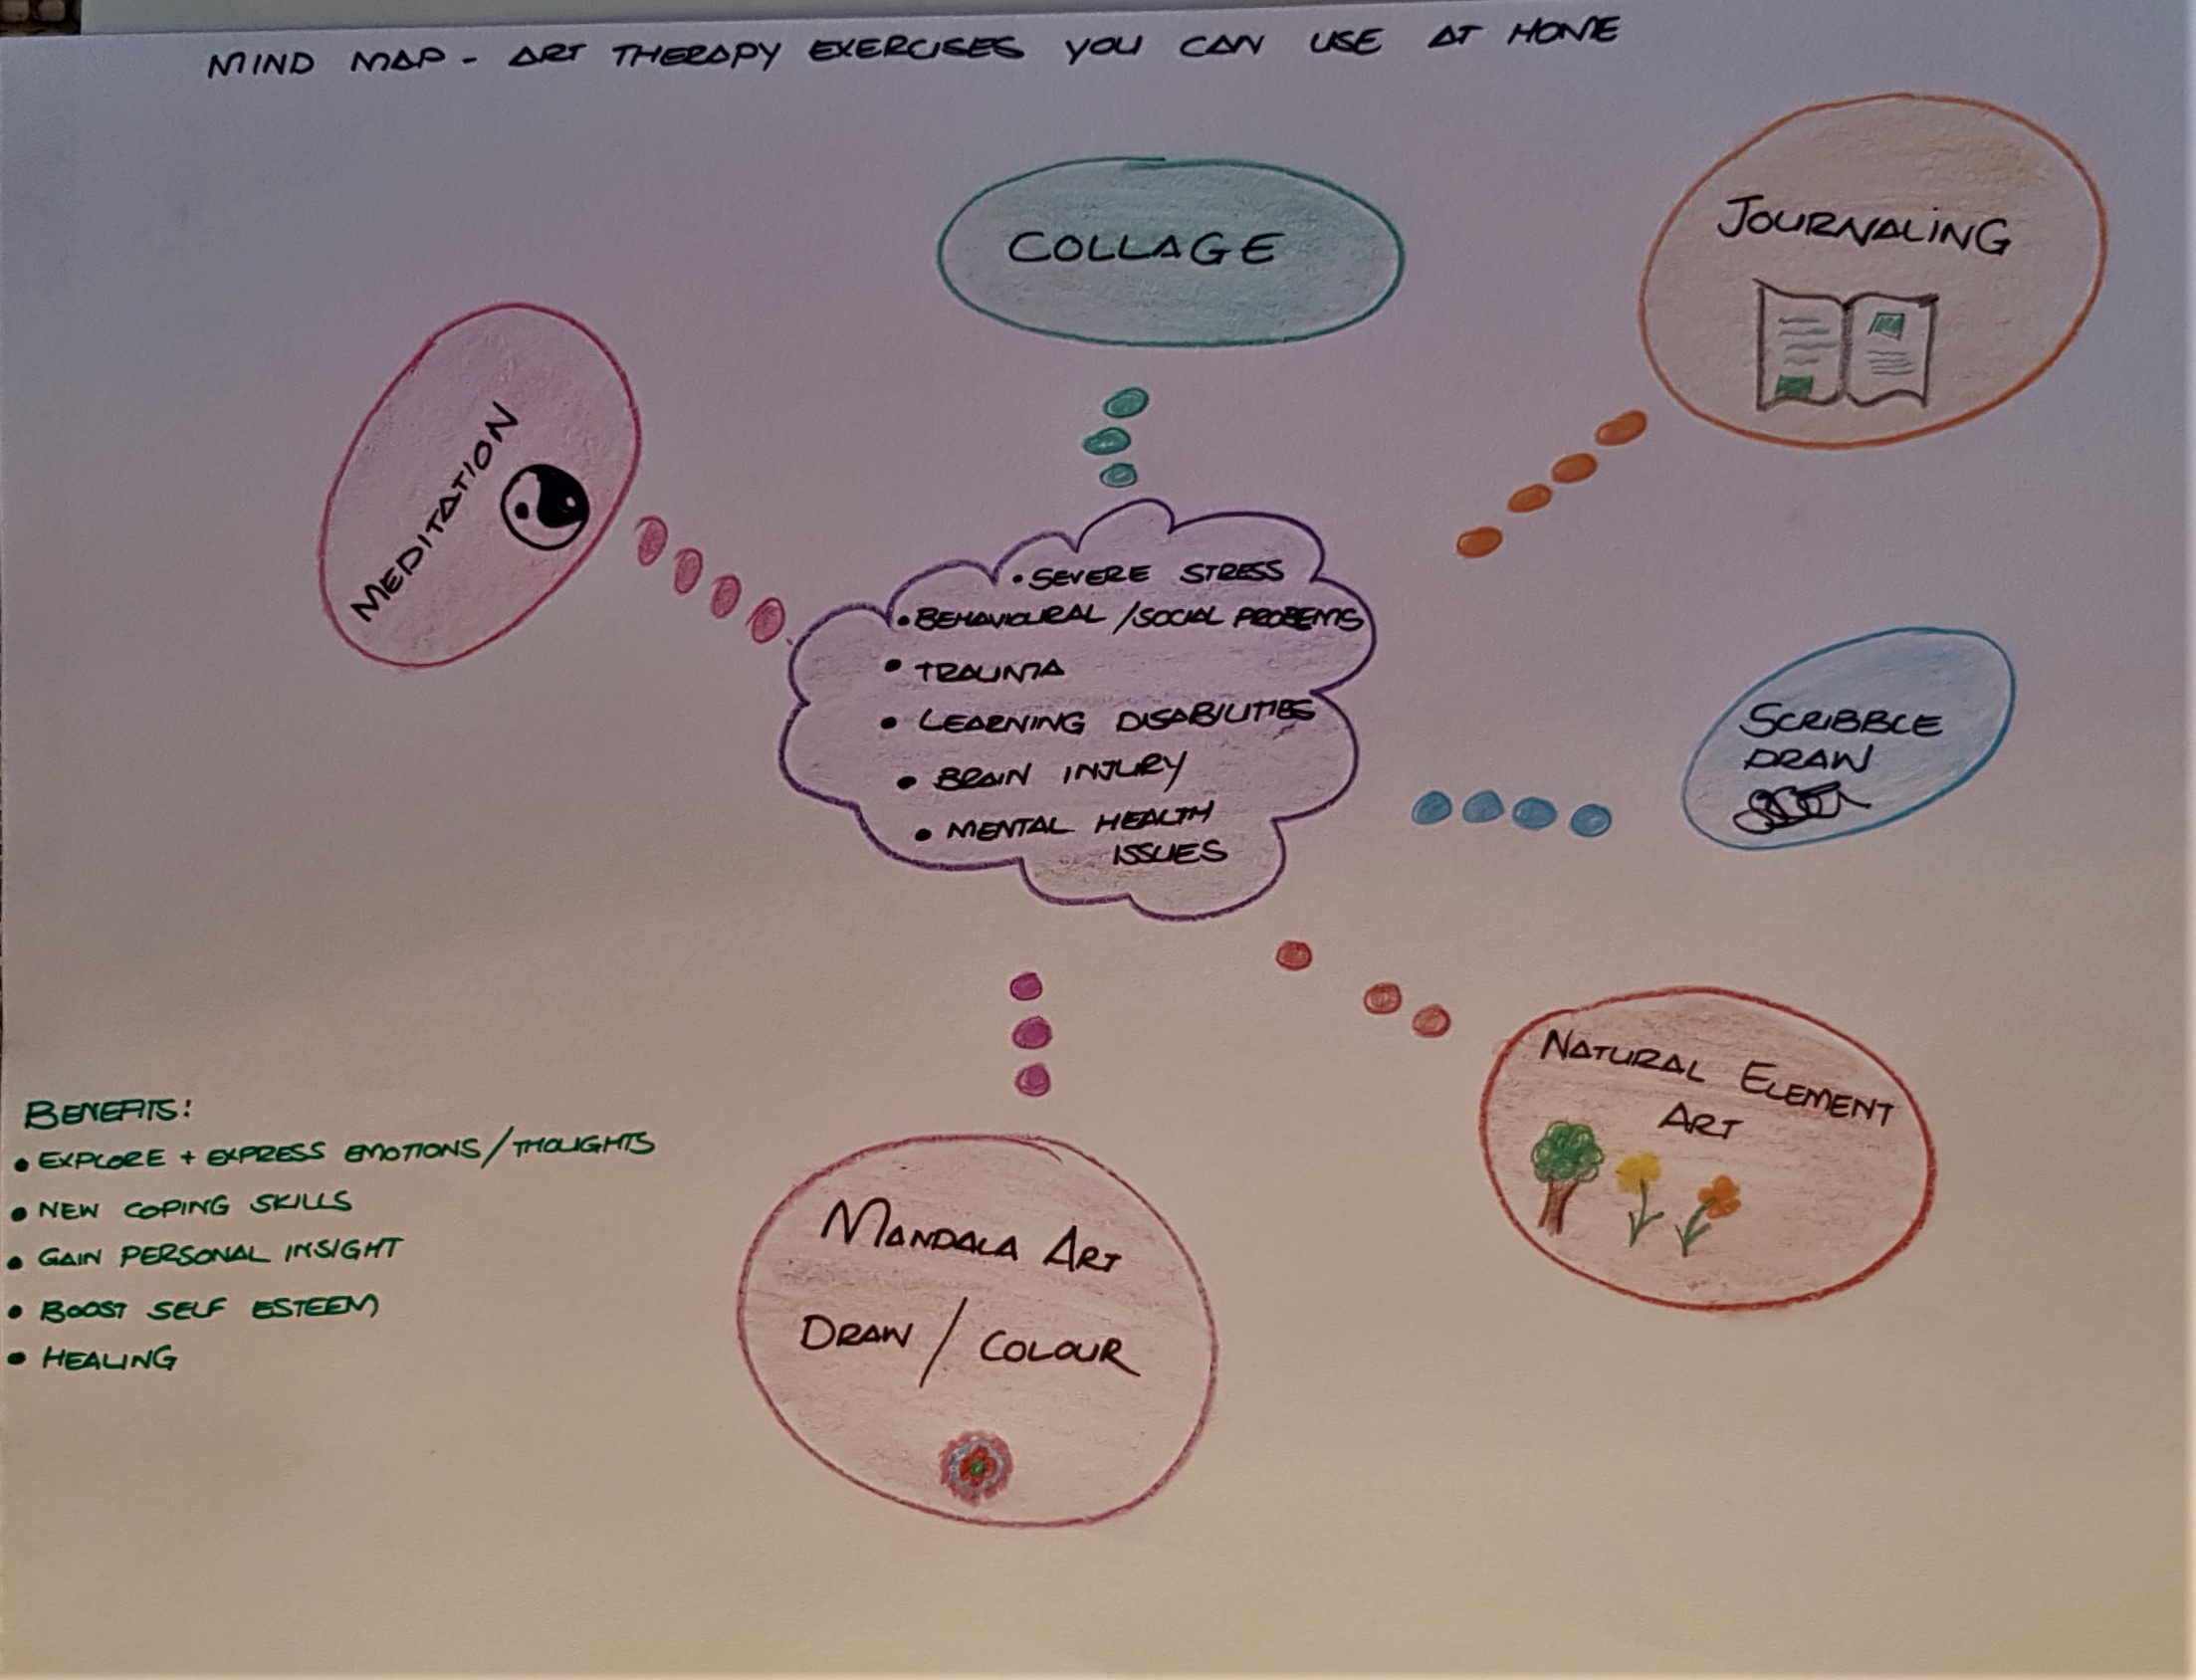 MIND MAP - ART THERAPY EXERCISES YOU CAN USE AT HOME
COLLAGE
JOURNALING
MEDITATION
• SEVERE STRESS
• BEHAVIOURAL / SOCIAL PROBEMS
• TRAUMA
• LEARNING DISABILITIES
• BRAIN INJURY
• MENTAL HEALTH
ISSUES
SCRIBBLE
DRAW
NATURAL ELEMENT
ART
MANDALA ART
DRAW / COLOUR
BENEFITS:
• EXPLORE + EXPRESS EMOTIONS / THOUGHTS
• NEW COPING SKILLS
• GAIN PERSONAL INSIGHT
• BOOST SELF ESTEEM
• HEALING